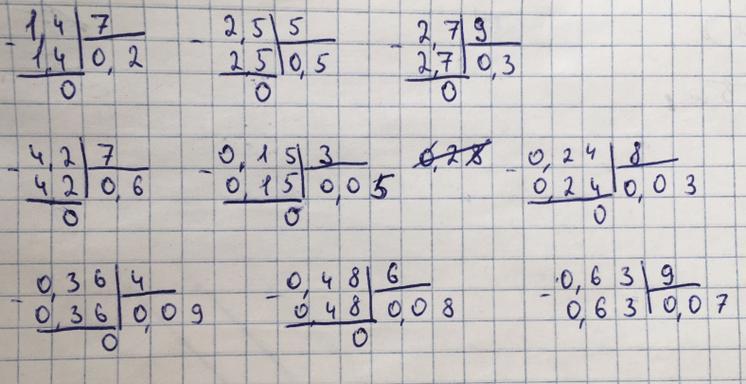 - 1,4 | 7 - 2,5 | 5 - 2,7 | 9
1,4 | 0,2 2 5 | 0,5 2,7 | 0,3
0 0 0
- 4,2 | 7 - 0,15 | 3 - 0,24 | 8
4 2 | 0,6 0,15 | 0,05 0,24 | 0,03
0 0 0
- 0,36 | 4 - 0,48 | 6 - 0,63 | 9
0,36 | 0,09 0,48 | 0,08 0,63 | 0,07
0 0